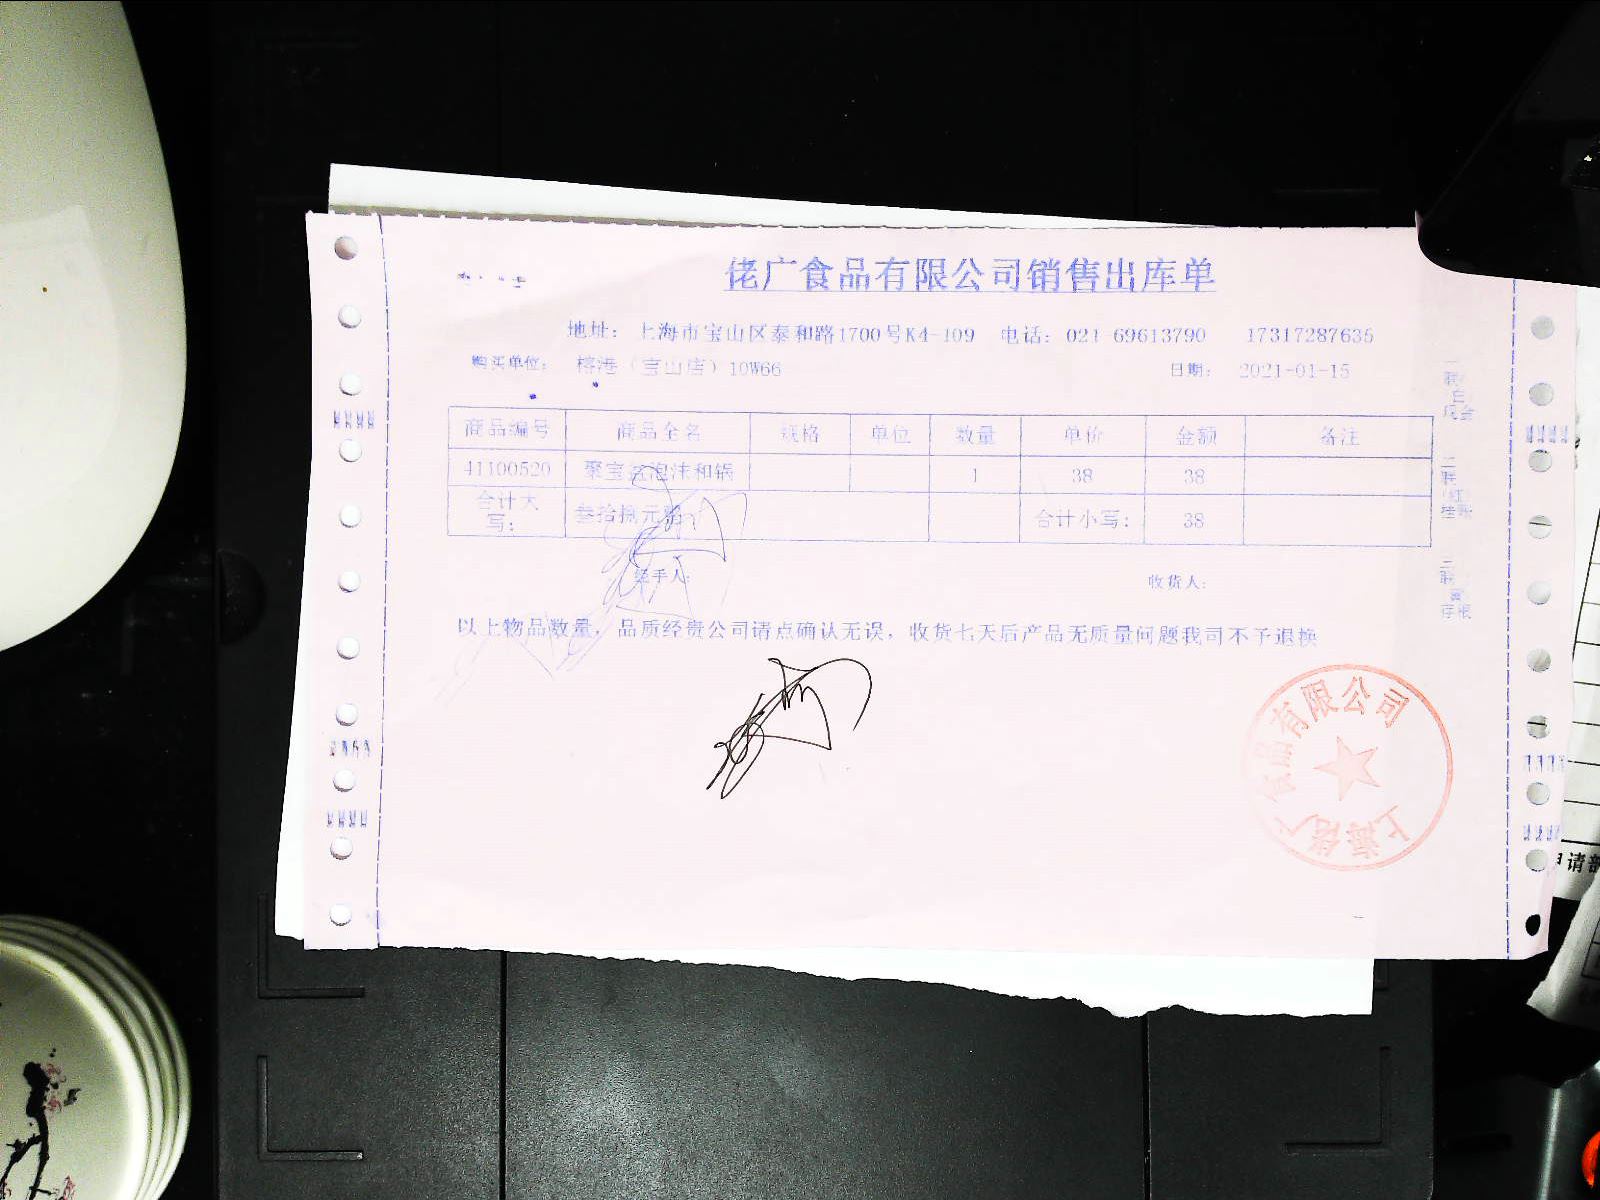 佬广食品有限公司销售出库单
地址： 上海市宝山区泰和路1700号K4-109 电话：021-69613790 17317287635
购买单位： 榕港（宝山店）10W66 日期： 2021-01-15
商品编号 商品全名 规格 单位 数量 单价 金额 备注
41100520 聚宝盆泡沫和锅 1 38 38
合计大写： 叁拾捌元 合计小写： 38
经手人： 收货人：
以上物品数量，品质经贵公司请点确认无误，收货七天后产品无质量问题我司不予退换
一联(白)
二联(红)
三联
存根
上海佬广食品有限公司
申请部